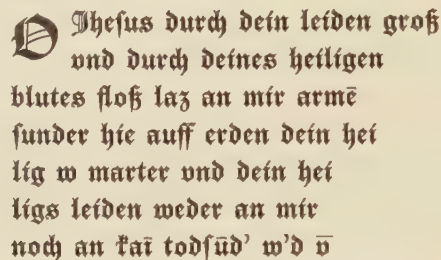 O Jheſus durch dein leiden groß
vnd durch deines heiligen
blutes floß laz an mir armē
ſunder hie auff erden dein hei
lig w marter vnd dein hei
ligs leiden weder an mir
noch an kaī todſūd' w'd v̄